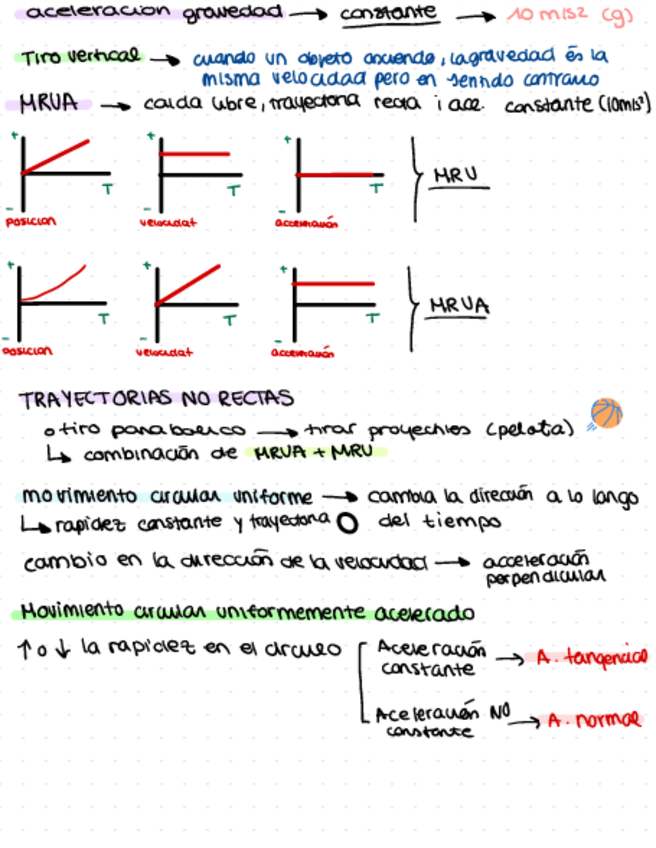 aceleracion gravedad → constante → 10 m/s2 (g)
Tiro vertical → cuando un objeto asciende, la gravedad es la
misma velocidad pero en sentido contrario
MRUA → caida libre, trayectoria recta i ace. constante (10m/s²)
+ + +
T T T
- - -
posicion velocidat acceleración
MRU
+ + +
T T T
- - -
posicion velocidat acceleración
MRUA
TRAYECTORIAS NO RECTAS
o tiro parabolico → tirar proyectiles (pelota)
↳ combinación de MRUA + MRU
movimiento circular uniforme → cambia la dirección a lo largo
↳ rapidez constante y trayectoria O del tiempo
cambio en la dirección de la velocidad → acceleración
perpendicular
Movimiento circular uniformemente acelerado
↑ o ↓ la rapidez en el circulo
Aceleración → A. tangencial
constante
Aceleración NO → A. normal
constante